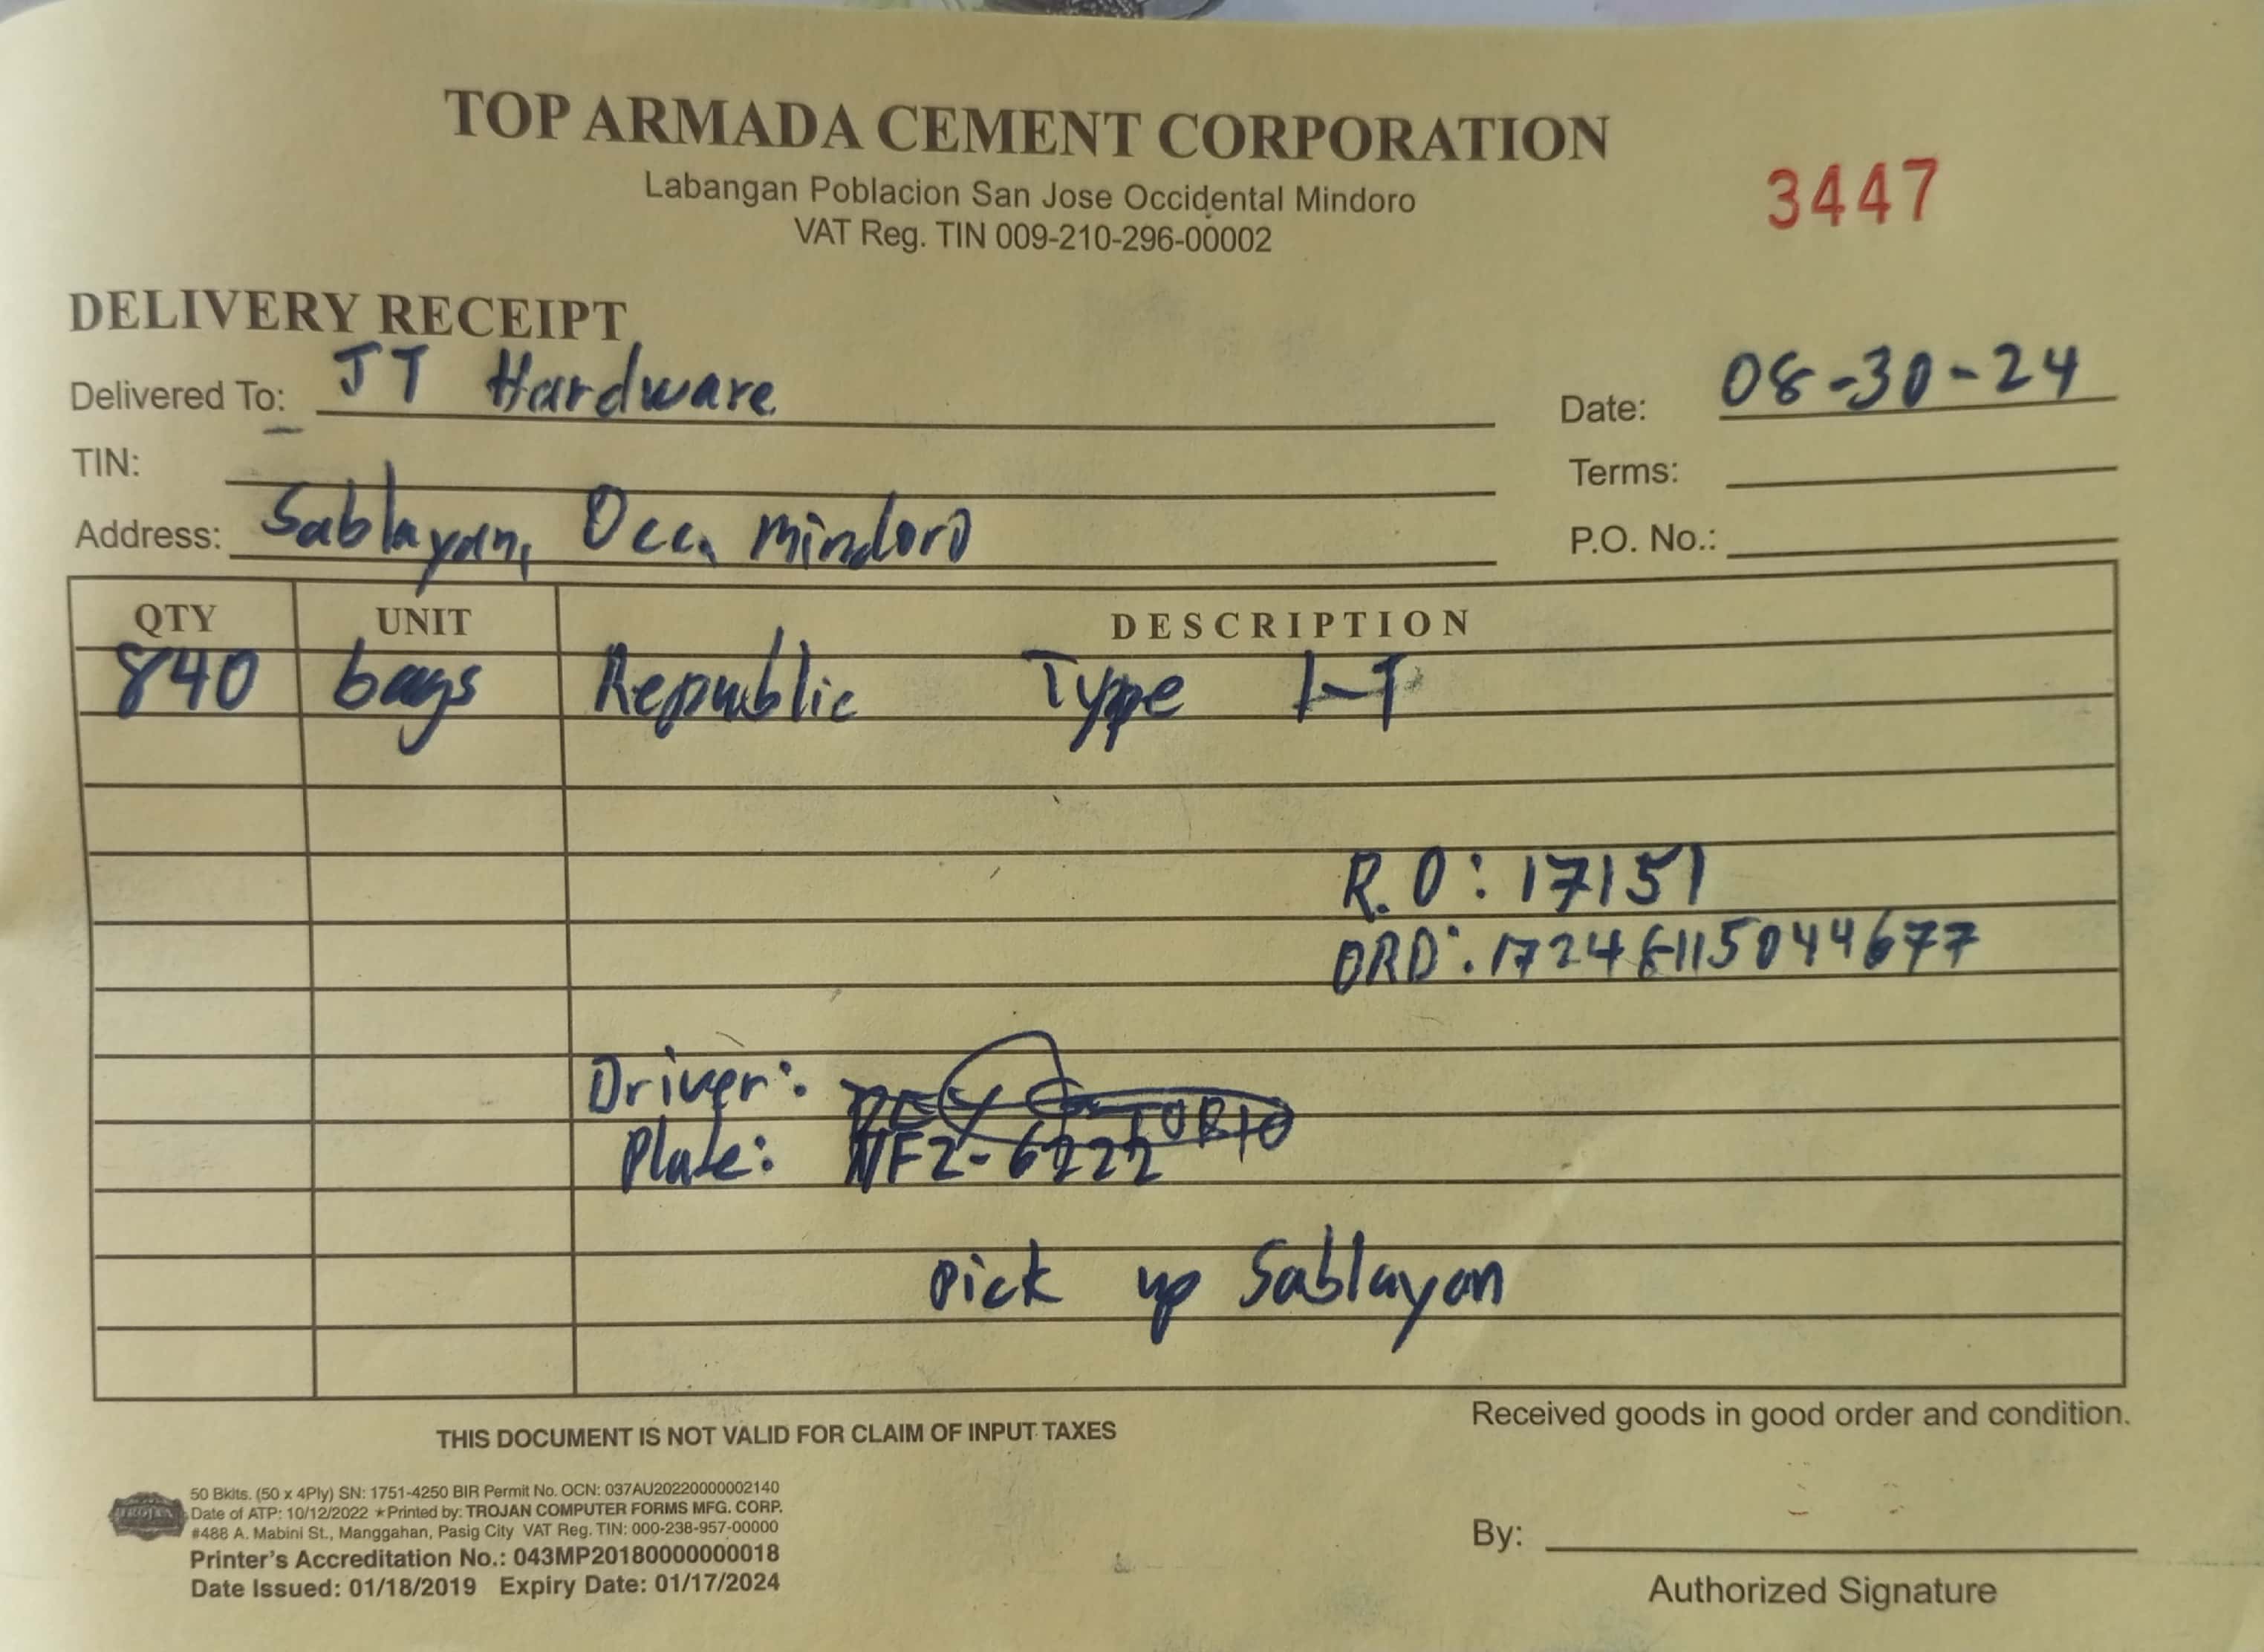 TOP ARMADA CEMENT CORPORATION
Labangan Poblacion San Jose Occidental Mindoro
VAT Reg. TIN 009-210-296-00002
3447
DELIVERY RECEIPT
Delivered To: JT Hardware
Date: 08-30-24
TIN:
Terms:
Address: Sablayan, Occ. Mindoro
P.O. No.:
QTY UNIT DESCRIPTION
840 bags Republic Type 1-T
R.O: 17151
ORD:
Driver:
Plate:
Pick up Sablayan
THIS DOCUMENT IS NOT VALID FOR CLAIM OF INPUT TAXES
Received goods in good order and condition.
50 Bklts. (50 x 4Ply) SN: 1751-4250 BIR Permit No. OCN: 037AU20220000002140
Date of ATP: 10/12/2022 ★Printed by: TROJAN COMPUTER FORMS MFG. CORP.
#488 A. Mabini St., Manggahan, Pasig City VAT Reg. TIN: 000-238-957-00000
Printer's Accreditation No.: 043MP20180000000018
Date Issued: 01/18/2019 Expiry Date: 01/17/2024
TROJAN
By:
Authorized Signature